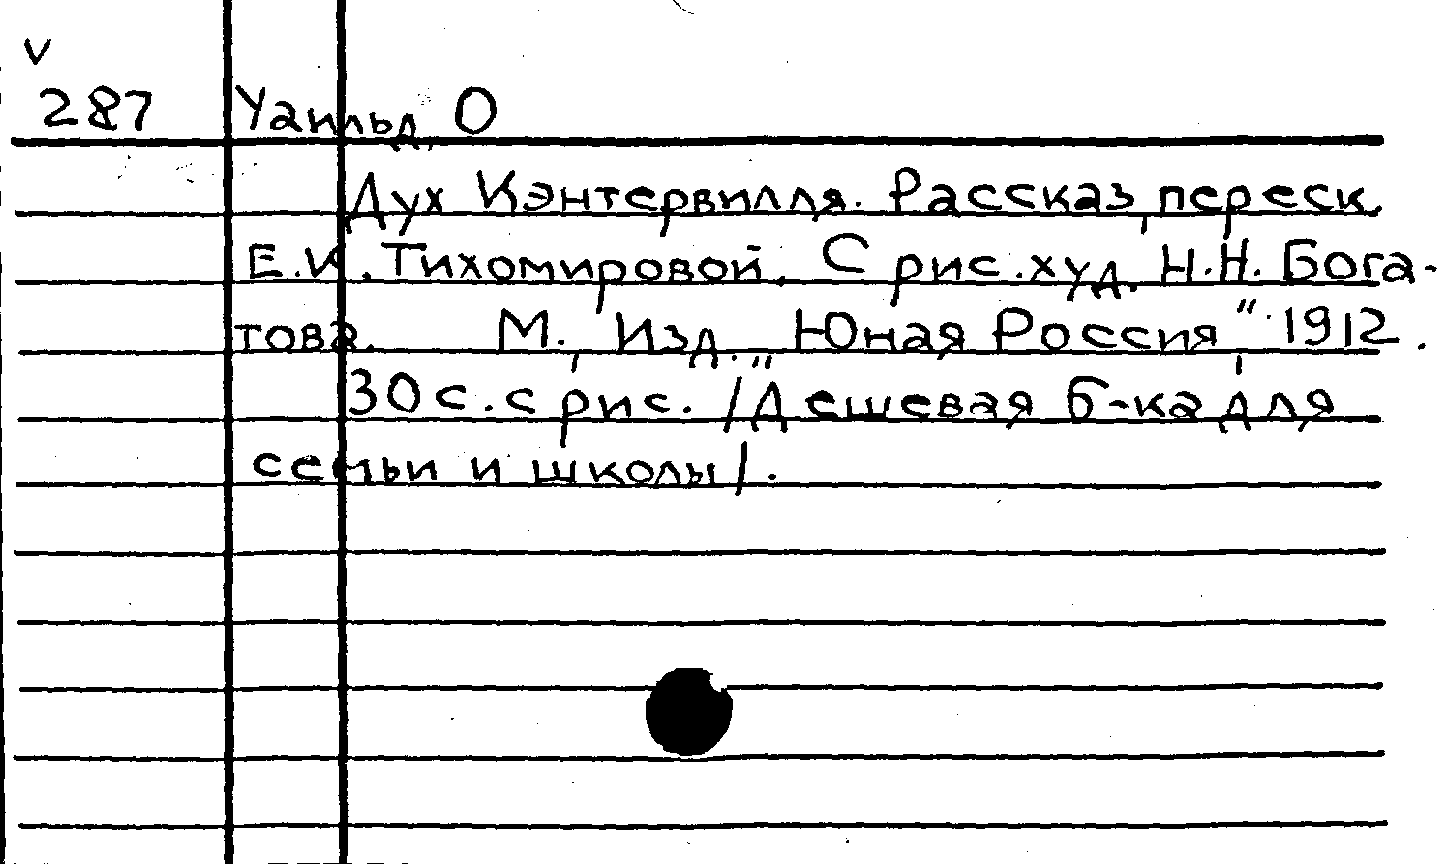 V
287 Уаильд, О
Дух Кэнтервилля. Рассказ, переск.
Е.И. Тихомировой. С рис. худ. Н.Н. Бога-
това. М., Изд. „Юная Россия", 1912.
30 с. с рис. /Дешевая б-ка для
семьи и школы/.